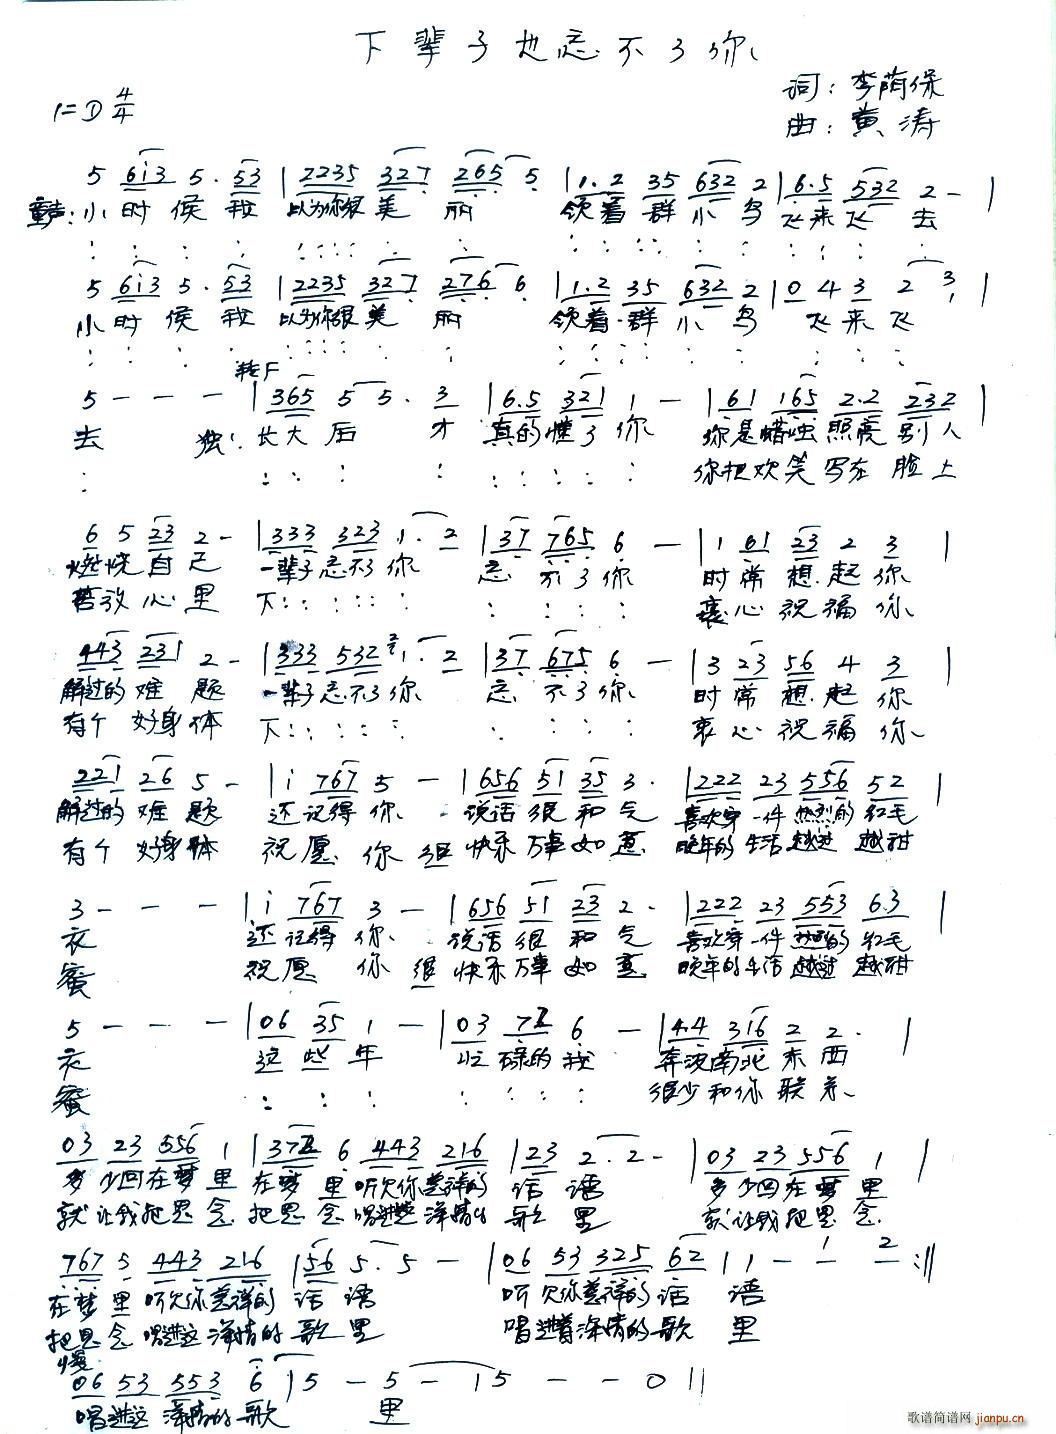 下辈子也忘不了你
词：李荫保
1=D 4/4
曲：黄涛
5 6i3 5. 53 | 2235 327 265 5 | 1.2 35 632 2 | 6.5 532 2 - |
童声：小时候我 以为你很美丽 领着群小鸟飞来飞去
5 6i3 5. 53 | 2235 327 276 6 | 1.2 35 632 2 | 0 4 3 2 3 |
小时候我 以为你很美丽 领着群小鸟 飞来飞
转F
5 - - - | 365 5 5. 3 | 6.5 321 1 - | 61 165 2.2 232 |
去 独：长大后才 真的懂了你 你是蜡烛照亮别人
你把欢笑写在脸上
6 5 23 2 - | 333 323 1. 2 | 37 765 6 - | 1 61 23 2 3 |
燃烧自己 一辈子忘不了你 忘不了你 时常想起你
苦放心里 下 衷心祝福你
443 231 2 - | 333 532 1. 2 | 37 675 6 - | 3 23 56 4 3 |
解过的难题 一辈子忘不了你 忘不了你 时常想起你
有个好身体 下 衷心祝福你
221 26 5 - | i 767 5 - | 656 51 35 3. | 222 23 556 52 |
解过的难题 还记得你 说话很和气 喜欢穿一件热烈的红毛
有个好身体 祝愿你很快乐万事如意 晚年的生活越过越甜
3 - - - | i 767 3 - | 656 51 23 2. | 222 23 553 6.3 |
衣 还记得你 说话很和气 喜欢穿一件热烈的红毛
蜜 祝愿你很快乐万事如意 晚年的生活越过越甜
5 - - - | 06 35 1 - | 03 72 6 - | 4.4 316 2 2. |
衣 这些年 忙碌的我 奔波南北东西
蜜 很少和你联系
03 23 556 1 | 372 6 443 216 | 23 2. 2 - | 03 23 556 1 |
多少回在梦里在梦里听久你慈祥的话语 多少回在梦里
就让我把思念把思念唱进这深情的歌里 就让我把思念
767 5 443 216 | 56 5. 5 - | 06 53 325 62 | 1 - 1 2 :||
在梦里听久你慈祥的话语 听久你慈祥的话语
把思念唱进这深情的歌里 唱进着深情的歌里
慢
06 53 553 6 | 5 - 5 - | 5 - - 0 ||
唱进这深情的歌里
歌谱简谱网 jianpu.cn